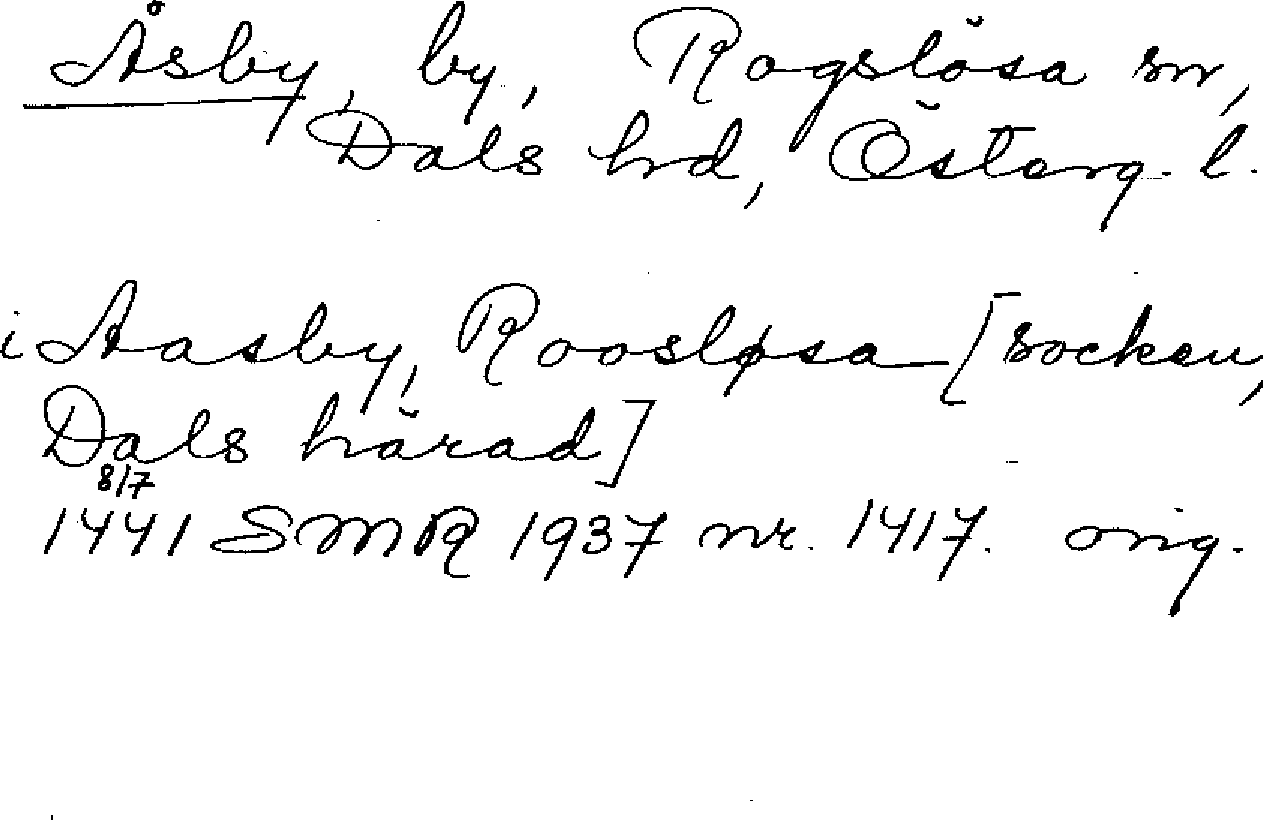 Åsby, by, Rogslösa sn,
Dals hd, Österg. l.
i Aasby, Roosløsa [socken,
Dals härad]
8/7
1441 SMR 1937 nr. 1417. orig.